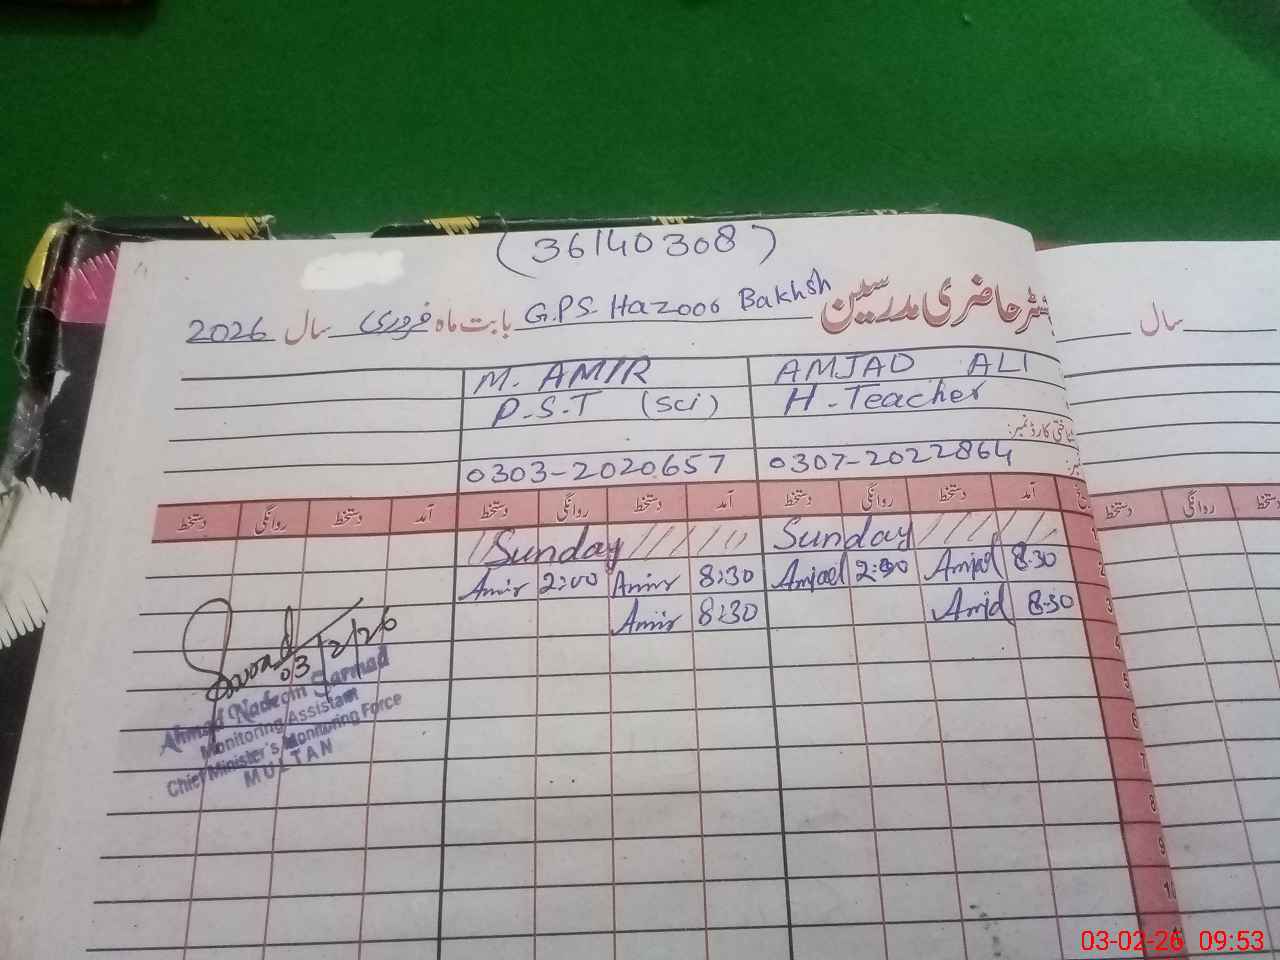 (36140308)
رجسٹر حاضری مدرسین G.P.S. Hazoor Bakhsh بابت ماہ فروری سال 2026
سال
AMJAD ALI M. AMIR
H. Teacher P.S.T (Sci)
شناختی کارڈ نمبر:
0307-2022864 0303-2020657
آمد دستخط روانگی دستخط آمد دستخط روانگی دستخط آمد دستخط روانگی دستخط
دستخط روانگی دستخط
1 Sunday Sunday
2 8.30 Amjad 2:00 Amjad 8:30 Amir 2:00 Amir
3 8.30 Amjd 8:30 Amir
4
5
6
7
8
9
10
03/2/26
Ahmad Nadeem Sarmad
Monitoring Assistant
Chief Minister's Monitoring Force
MULTAN
03-02-26 09:53